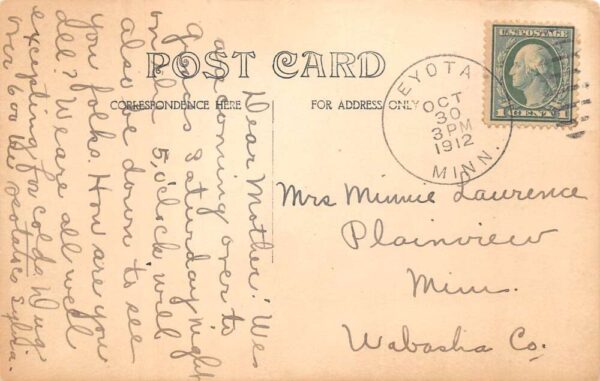 POST CARD
CORRESPONDENCE HERE
FOR ADDRESS ONLY
U.S. POSTAGE
1 CENT 1
EYOTA
OCT
30
3 PM
1912
MINN.
Dear Mother! We
are coming over to
Saturday night
on 5,o'clock will
also be down to see
you folks. How are you
all? We are all well
excepting for colds. Dug
over 600 bu potatoes Sylvia.
Mrs Minnie Laurence
Plainview
Minn.
Wabasha Co.